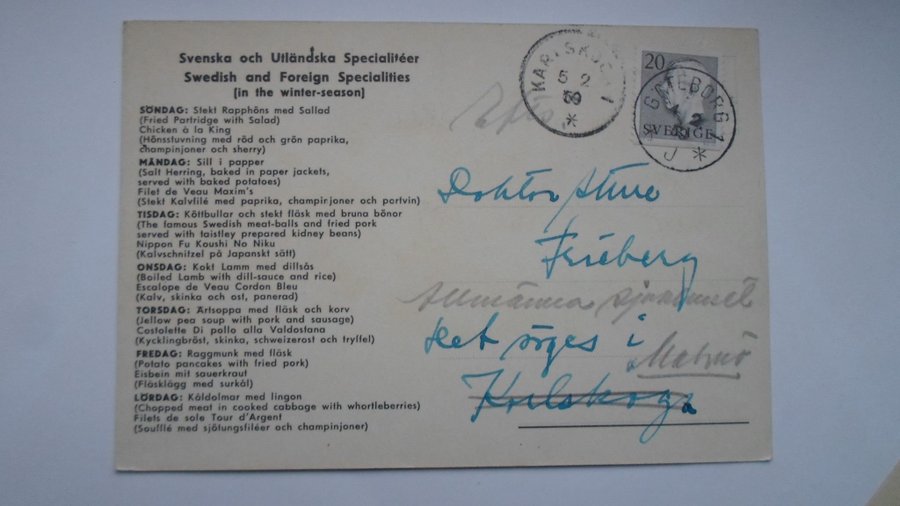 Svenska och Utländska Specialitéer
Swedish and Foreign Specialities
(in the winter-season)
SÖNDAG: Stekt Rapphöns med Sallad
(Fried Partridge with Salad)
Chicken à la King
(Hönsstuvning med röd och grön paprika,
champinjoner och sherry)
MÅNDAG: Sill i papper
(Salt Herring, baked in paper jackets,
served with baked potatoes)
Filet de Veau Maxim's
(Stekt Kalvfilé med paprika, champirjoner och portvin)
TISDAG: Köttbullar och stekt fläsk med bruna bönor
(The famous Swedish meat-balls and fried pork
served with taistley prepared kidney beans)
Nippon Fu Koushi No Niku
(Kalvschnitzel på Japanskt sätt)
ONSDAG: Kokt Lamm med dillsås
(Boiled Lamb with dill-sauce and rice)
Escalope de Veau Cordon Bleu
(Kalv, skinka och ost, panerad)
TORSDAG: Ärtsoppa med fläsk och korv
(Jellow pea soup with pork and sausage)
Costolette Di pollo alla Valdostana
(Kycklingbröst, skinka, schweizerost och tryffel)
FREDAG: Raggmunk med fläsk
(Potato pancakes with fried pork)
Eisbein mit sauerkraut
(Fläsklägg med surkål)
LÖRDAG: Kåldolmar med lingon
(Chopped meat in cooked cabbage with whortleberries)
Filets de sole Tour d'Argent
(Soufflé med sjötungsfiléer och champinjoner)
KARLSKOGA 1
5 2
59
*
20
SVERIGE
GÖTEBORG 1
4 2
* J *
Doktor Sture
Frieberg
Allmänna sjukhuset
Malmö
Karlskoga